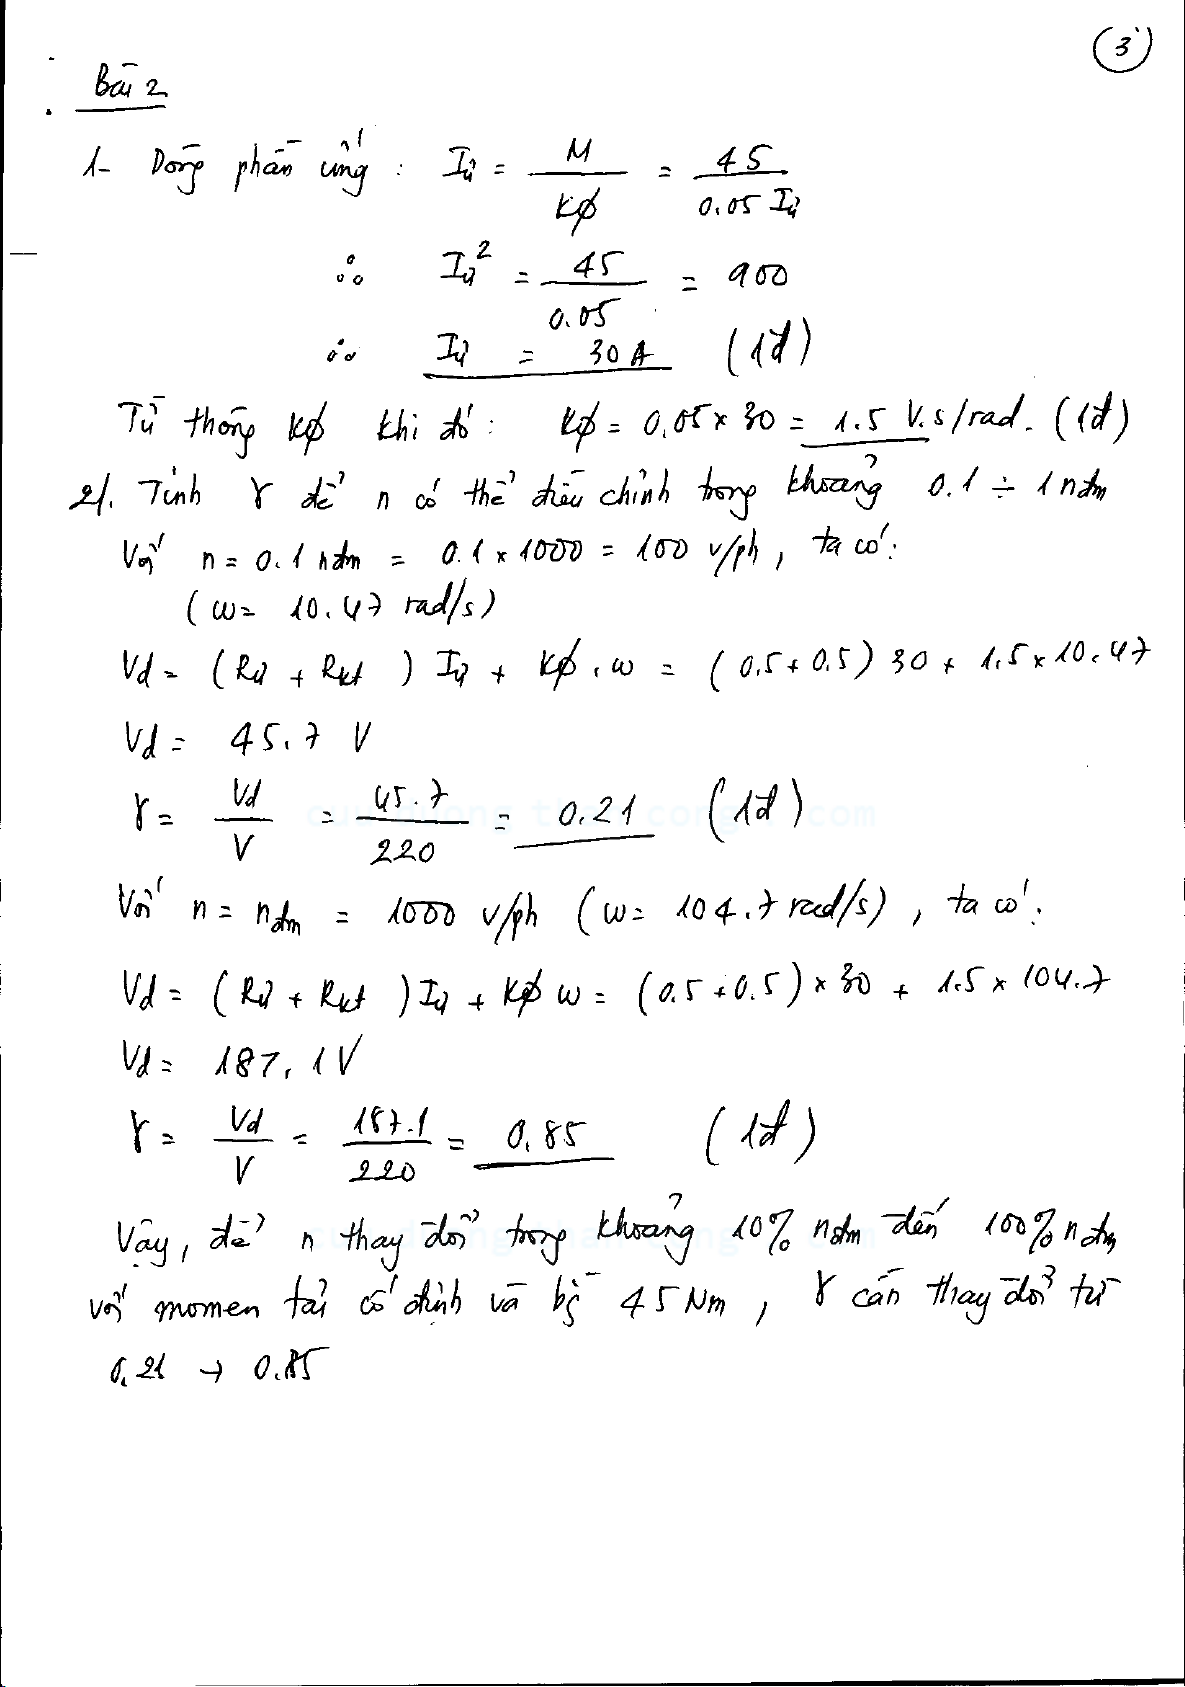 3
Bài 2
1- Dòng phần ứng : Iư = M / KΦ = 45 / 0.05 Iư
∴ Iư² = 45 / 0.05 = 900
∴ Iư = 30 A (1đ)
Từ thông KΦ khi đó : KΦ = 0.05 × 30 = 1.5 V.s/rad. (1đ)
2/. Tính γ để n có thể điều chỉnh trong khoảng 0.1 ÷ 1 nđm
Với n = 0.1 nđm = 0.1 × 1000 = 100 v/ph, ta có:
(ω = 10.47 rad/s)
Vd = (Rư + Rkt) Iư + KΦ.ω = (0.5 + 0.5) 30 + 1.5 × 10.47
Vd = 45.7 V
γ = Vd / V = 45.7 / 220 = 0.21 (1đ)
Với n = nđm = 1000 v/ph (ω = 104.7 rad/s), ta có:
Vd = (Rư + Rkt) Iư + KΦ ω = (0.5 + 0.5) × 30 + 1.5 × 104.7
Vd = 187.1 V
γ = Vd / V = 187.1 / 220 = 0.85 (1đ)
Vậy, để n thay đổi trong khoảng 10% nđm đến 100% nđm
với momen tải cố định và bằng 45 Nm, γ cần thay đổi từ
0.21 → 0.85